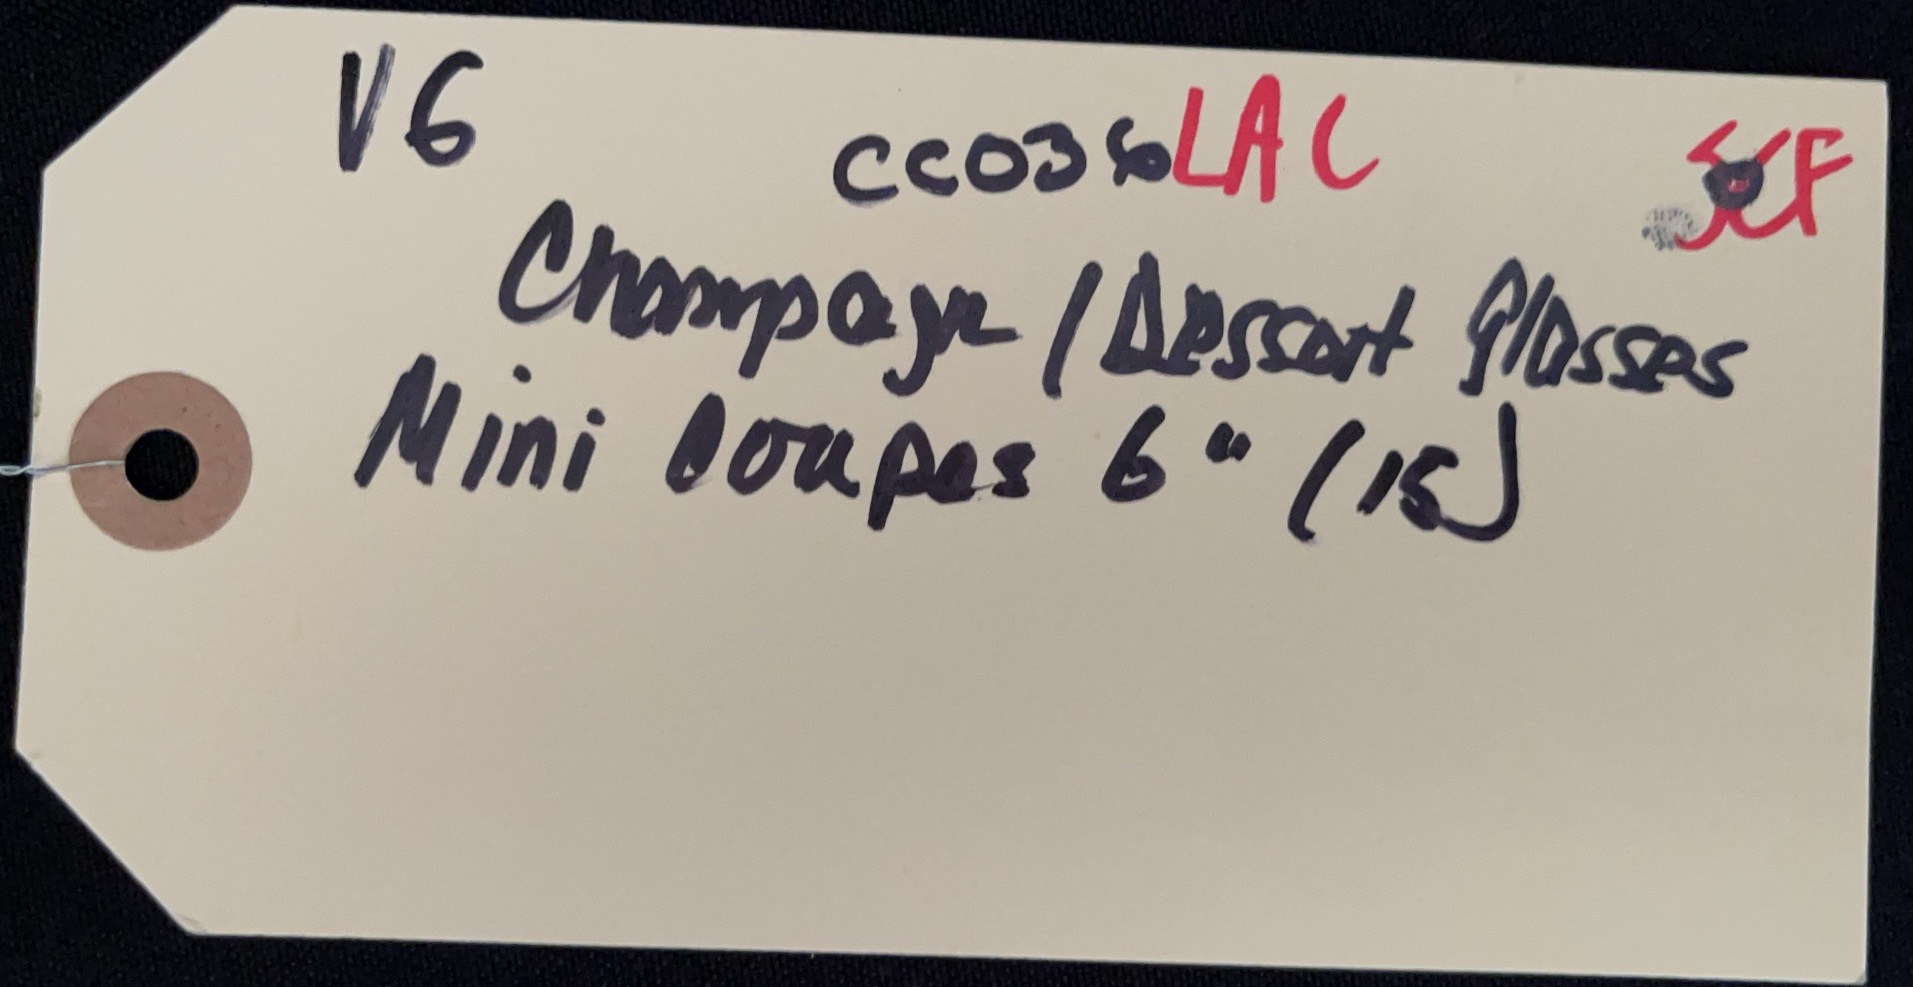 V6
CC03 LAC
Champagne/Dessert Glasses
Mini Coupes 6" (15)